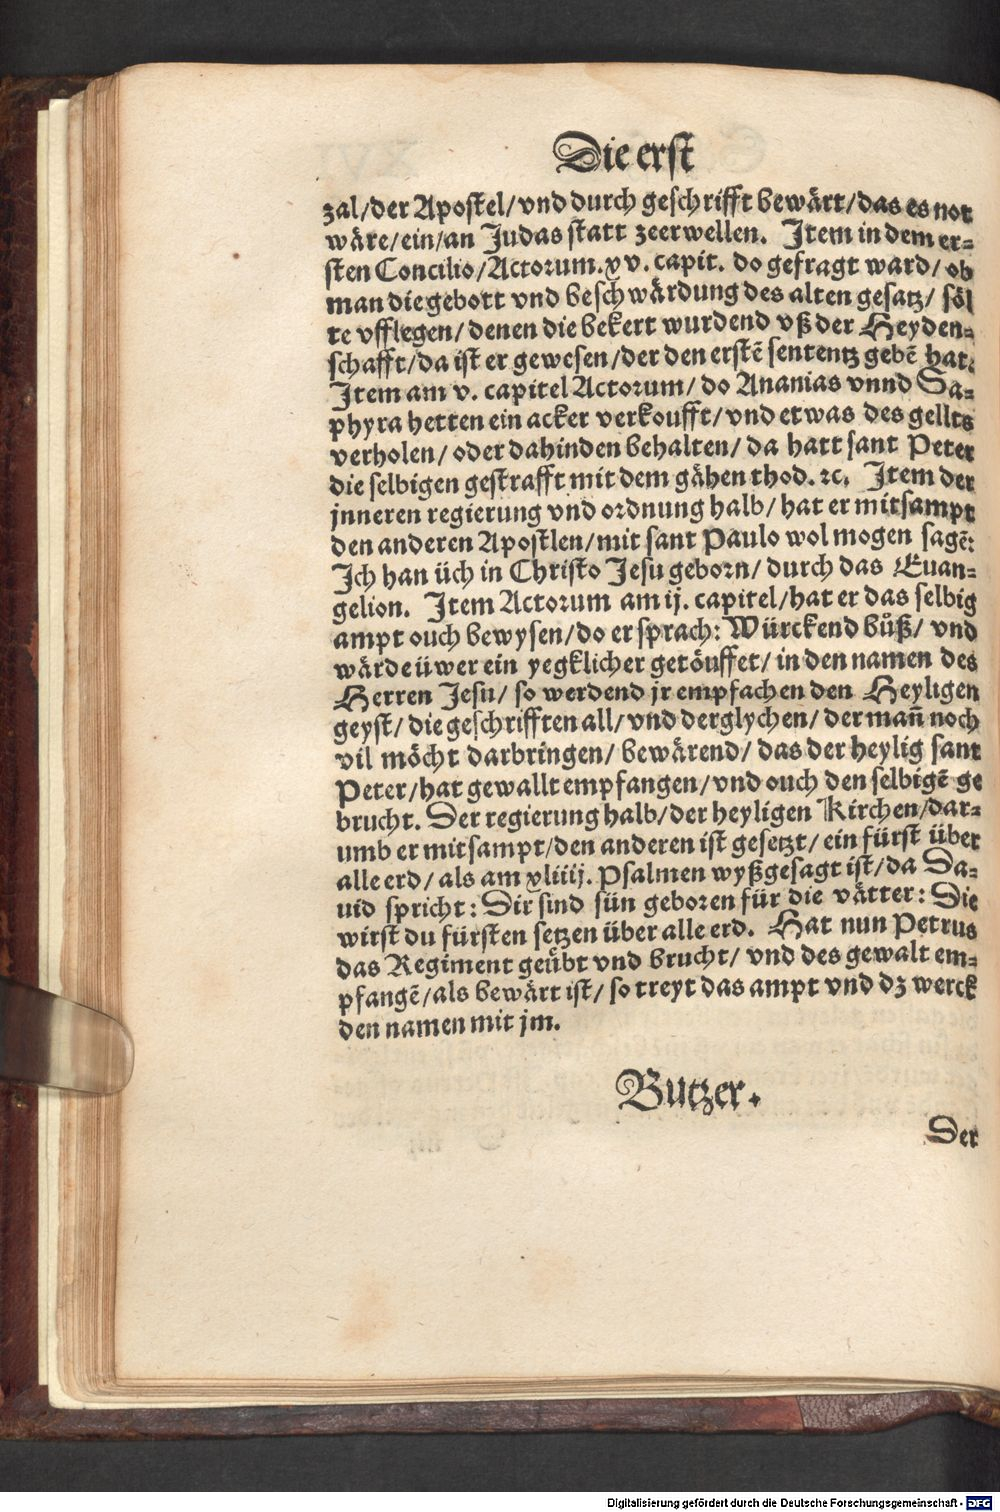 Die erst
zal/der Apostel/vnd durch geschrifft bewärt/das es not
wäre/ein/an Judas statt zeerwellen. Item in dem er⸗
sten Concilio/Actorum.xv. capit. do gefragt ward/ ob
man die gebott vnd beschwärdung des alten gesatz/ söl
te vfflegen/denen die bekert wurdend vß der Heyden⸗
schafft/da ist er gewesen/der den erstē sententz gebē hat.
Item am v. capitel Actorum/do Ananias vnnd Sa⸗
phyra hetten ein acker verkoufft/vnd etwas des gellts
verholen/ oder dahinden behalten/ da hatt sant Peter
die selbigen gestrafft mit dem gähen thod. ꝛc. Item der
jnneren regierung vnd ordnung halb/ hat er mitsampt
den anderen Apostlen/mit sant Paulo wol mogen sagē:
Ich han üch in Christo Jesu geborn/ durch das Euan⸗
gelion. Item Actorum am ij. capitel/hat er das selbig
ampt ouch bewysen/do er sprach: Würckend bůß/ vnd
wärde üwer ein yegklicher getöuffet/ in den namen des
Herren Jesu/ so werdend jr empfachen den Heyligen
geyst/ die geschrifften all/vnd derglychen/ der mañ noch
vil möcht darbringen/ bewärend/ das der heylig sant
Peter/hat gewallt empfangen/vnd ouch den selbigē ge
brucht. Der regierung halb/der heyligen Kirchen/dar⸗
umb er mitsampt/den anderen ist gesetzt/ ein fürst über
alle erd/ als am xliiij. Psalmen wyßgesagt ist/da Da⸗
uid spricht: Dir sind sün geboren für die vätter: Die
wirst du fürsten setzen über alle erd. Hat nun Petrus
das Regiment geübt vnd brucht/ vnd des gewalt em⸗
pfangē/als bewärt ist/ so treyt das ampt vnd dz werck
den namen mit jm.
Butzer.
Der
Digitalisierung gefördert durch die Deutsche Forschungsgemeinschaft - DFG